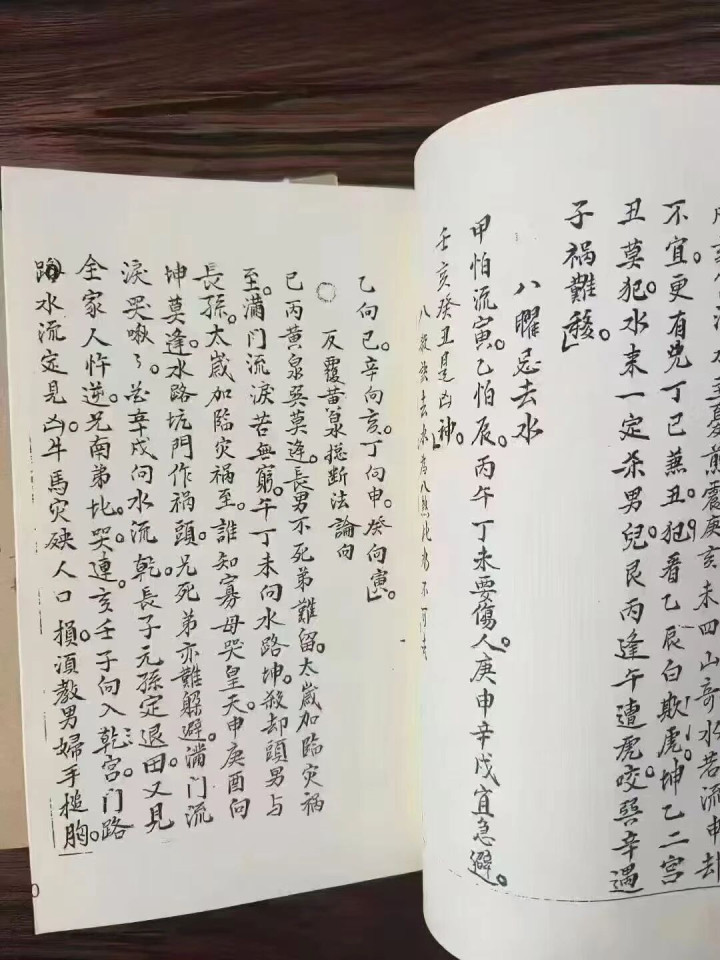 不宜。更有兇丁巳兼丑。犯着乙辰白欺虎。坤乙二宮
丑莫犯。水来一定杀男兒。艮丙逢午遭虎咬。巽辛遇
子禍難移。
八曜忌去水
甲怕流寅。乙怕辰。丙午丁未要傷人。庚申辛戌宜急避。
壬亥癸丑是凶神。
乙向巳。辛向亥。丁向申。癸向寅。
反覆黄泉捴断法論向
巳丙黄泉巽莫逢。長男不死弟難留。太歲加臨灾禍
至。满门流淚苦無窮。午丁未向水路坤。殺却頭男与
長孫。太歲加臨灾禍至。誰知寡母哭皇天。申庚酉向
坤莫逢。水路坑門作禍頭。兄死弟亦難躲避。满门流
淚哭啾々。辛戌向水流乾。長子元孫定退田。又見
全家人忤逆。兄南弟北。哭連。亥壬子向入乾宫。门路
路水流定見凶。牛馬灾殃人口損。須教男婦手槌胸。